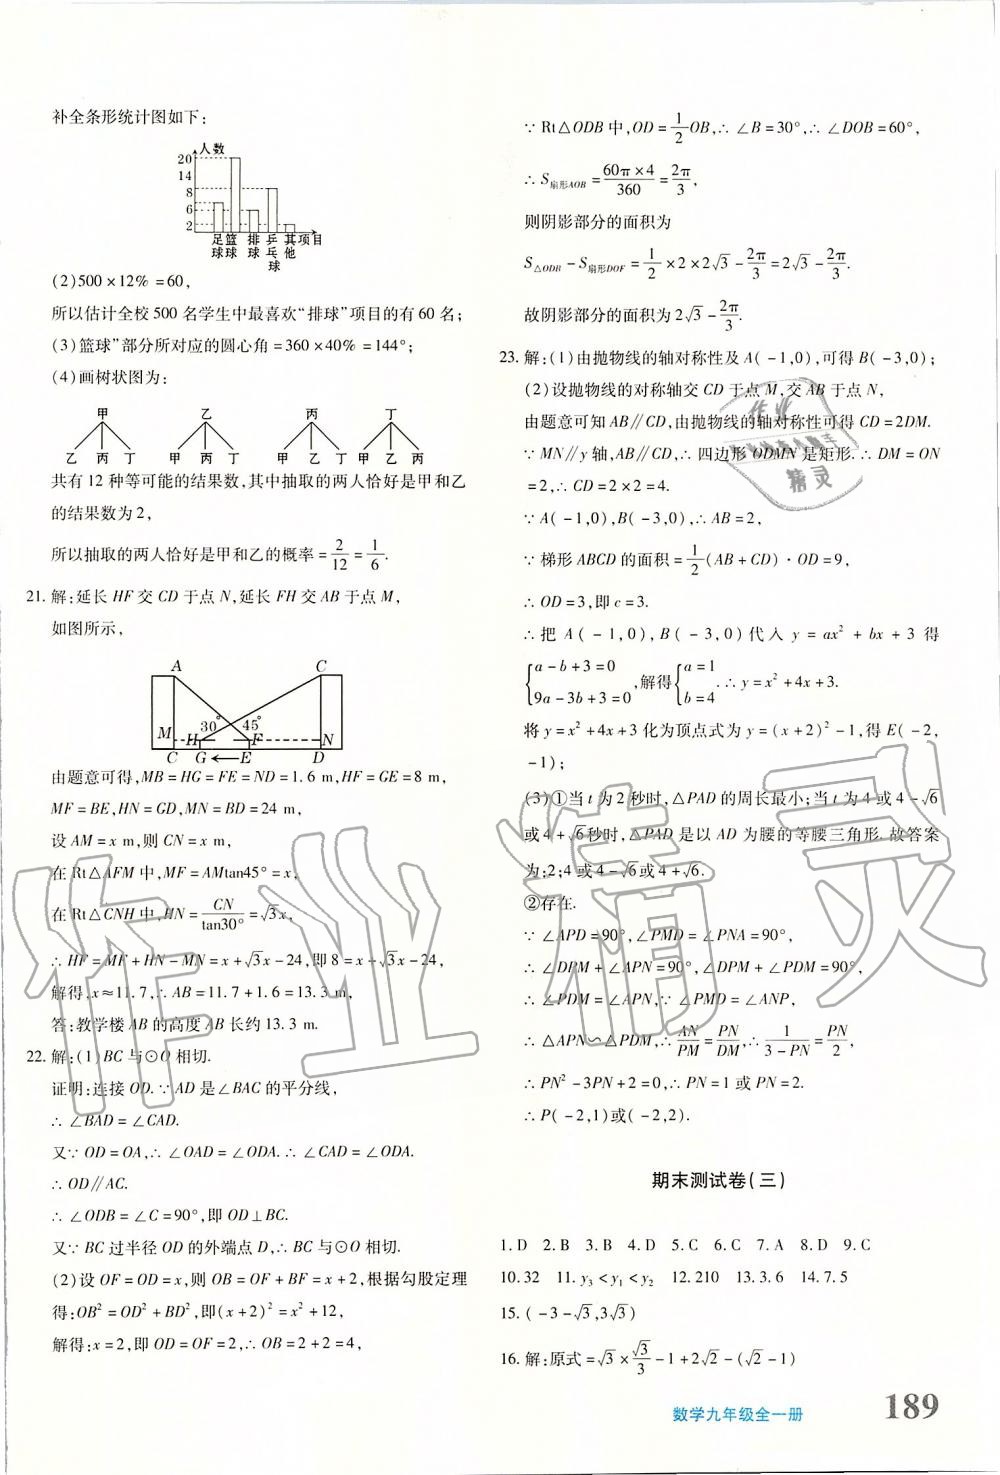 补全条形统计图如下:
人数
20
14
8
6
2
足球 篮球 排球 乒乓球 其他 项目
(2)500×12%=60,
所以估计全校500名学生中最喜欢“排球”项目的有60名;
(3)篮球”部分所对应的圆心角=360×40%=144°;
(4)画树状图为:
甲 乙 丙 丁
乙 丙 丁 甲 丙 丁 甲 乙 丁 甲 乙 丙
共有12种等可能的结果数,其中抽取的两人恰好是甲和乙
的结果数为2,
所以抽取的两人恰好是甲和乙的概率=2/12=1/6.
21.解:延长HF交CD于点N,延长FH交AB于点M,
如图所示,
A C
M H 30° 45° F N
C G E D
由题意可得,MB=HG=FE=ND=1.6 m,HF=GE=8 m,
MF=BE,HN=GD,MN=BD=24 m,
设AM=x m,则CN=x m,
在Rt△AFM中,MF=AMtan45°=x,
在Rt△CNH中,HN=CN/tan30°=√3x,
∴HF=MF+HN-MN=x+√3x-24,即8=x+√3x-24,
解得,x≈11.7,∴AB=11.7+1.6=13.3 m,
答:教学楼AB的高度AB长约13.3 m.
22.解:(1)BC与⊙O相切.
证明:连接OD.∵AD是∠BAC的平分线,
∴∠BAD=∠CAD.
又∵OD=OA,∴∠OAD=∠ODA.∴∠CAD=∠ODA.
∴OD∥AC.
∴∠ODB=∠C=90°,即OD⊥BC.
又∵BC过半径OD的外端点D,∴BC与⊙O相切.
(2)设OF=OD=x,则OB=OF+BF=x+2,根据勾股定理
得:OB²=OD²+BD²,即(x+2)²=x²+12,
解得:x=2,即OD=OF=2,∴OB=2+2=4,
∵Rt△ODB中,OD=1/2OB,∴∠B=30°,∴∠DOB=60°,
∴S扇形AOB=60π×4/360=2π/3,
则阴影部分的面积为
S△ODB-S扇形DOF=1/2×2×2√3-2π/3=2√3-2π/3.
故阴影部分的面积为2√3-2π/3.
23.解:(1)由抛物线的轴对称性及A(-1,0),可得B(-3,0);
(2)设抛物线的对称轴交CD于点M,交AB于点N,
由题意可知AB∥CD,由抛物线的轴对称性可得CD=2DM.
∵MN∥y轴,AB∥CD,∴四边形ODMN是矩形.∴DM=ON
=2,∴CD=2×2=4.
∵A(-1,0),B(-3,0),∴AB=2,
∵梯形ABCD的面积=1/2(AB+CD)·OD=9,
∴OD=3,即c=3.
∴把A(-1,0),B(-3,0)代入y=ax²+bx+3得
{a-b+3=0 9a-3b+3=0,解得{a=1 b=4.∴y=x²+4x+3.
将y=x²+4x+3化为顶点式为y=(x+2)²-1,得E(-2,
-1);
(3)①当t为2秒时,△PAD的周长最小;当t为4或4-√6
或4+√6秒时,△PAD是以AD为腰的等腰三角形.故答案
为:2;4或4-√6或4+√6.
②存在.
∵∠APD=90°,∠PMD=∠PNA=90°,
∴∠DPM+∠APN=90°,∠DPM+∠PDM=90°,
∴∠PDM=∠APN,∵∠PMD=∠ANP,
∴△APN∽△PDM,∴AN/PM=PN/DM,∴1/(3-PN)=PN/2,
∴PN²-3PN+2=0,∴PN=1或PN=2.
∴P(-2,1)或(-2,2).
期末测试卷(三)
1.D 2.B 3.B 4.D 5.C 6.C 7.A 8.D 9.C
10.32 11.y₃<y₁<y₂ 12.210 13.3.6 14.7.5
15.(-3-√3,3√3)
16.解:原式=√3×√3/3-1+2√2-(√2-1)
数学九年级全一册 189
作业精灵
作业
精灵